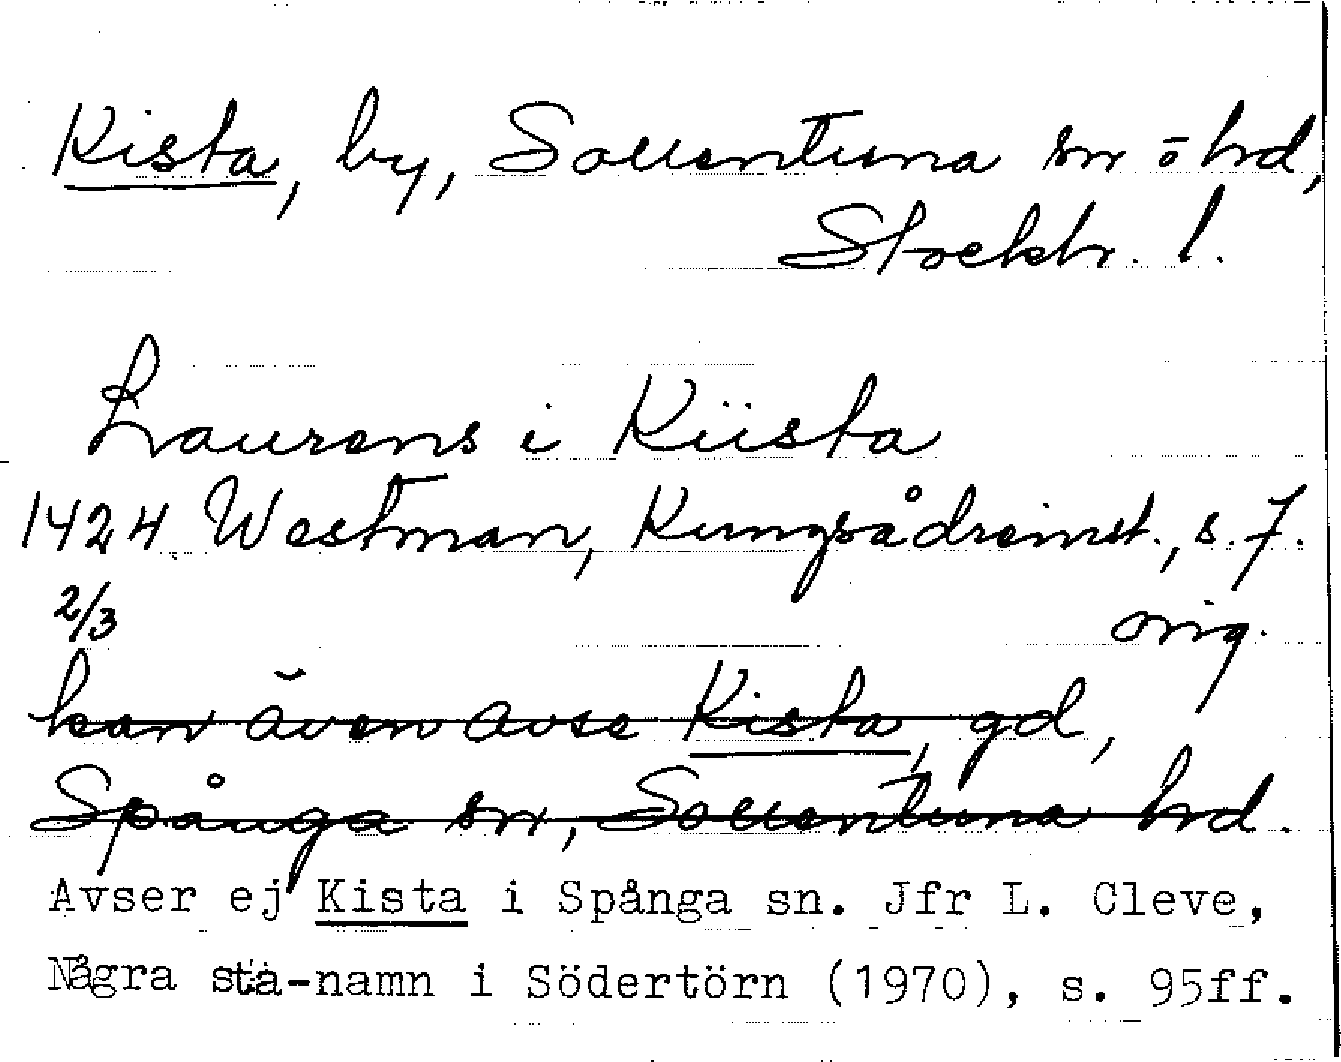 Kista, by, Sollentuna sn o hd,
Stockh. l.
Laurens i Kiista
1424 Westman, Kungsådreinst., s. 7.
2/3 orig.
kan även avse Kista, gd,
Spånga sn, Sollentuna hd.
Avser ej Kista i Spånga sn. Jfr L. Cleve,
Några sta-namn i Södertörn (1970), s. 95ff.